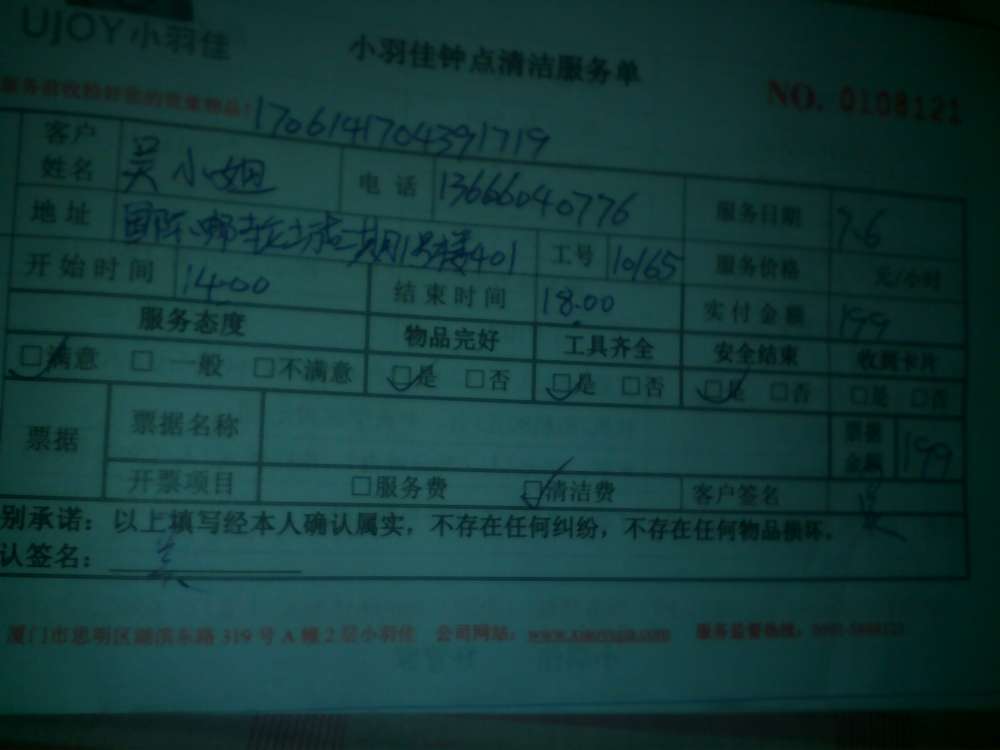 UJOY小羽佳
小羽佳钟点清洁服务单
NO. 0108121
1706141704391719
客户姓名 吴小姐 电话 13666040776 服务日期 7.6
地址 国际邮轮城二期1号楼401 工号 10165 服务价格 元/小时
开始时间 14:00 结束时间 18:00 实付金额 199
服务态度 物品完好 工具齐全 安全结束 收到卡片
□满意 □一般 □不满意 □是 □否 □是 □否 □是 □否 □是 □否
票据 票据名称 票据金额 199
开票项目 □服务费 □清洁费 客户签名 吴
别承诺：以上填写经本人确认属实，不存在任何纠纷，不存在任何物品损坏。
认签名： 吴
厦门市思明区湖滨东路 319 号 A 幢 2 层小羽佳 公司网站： 服务监督热线：